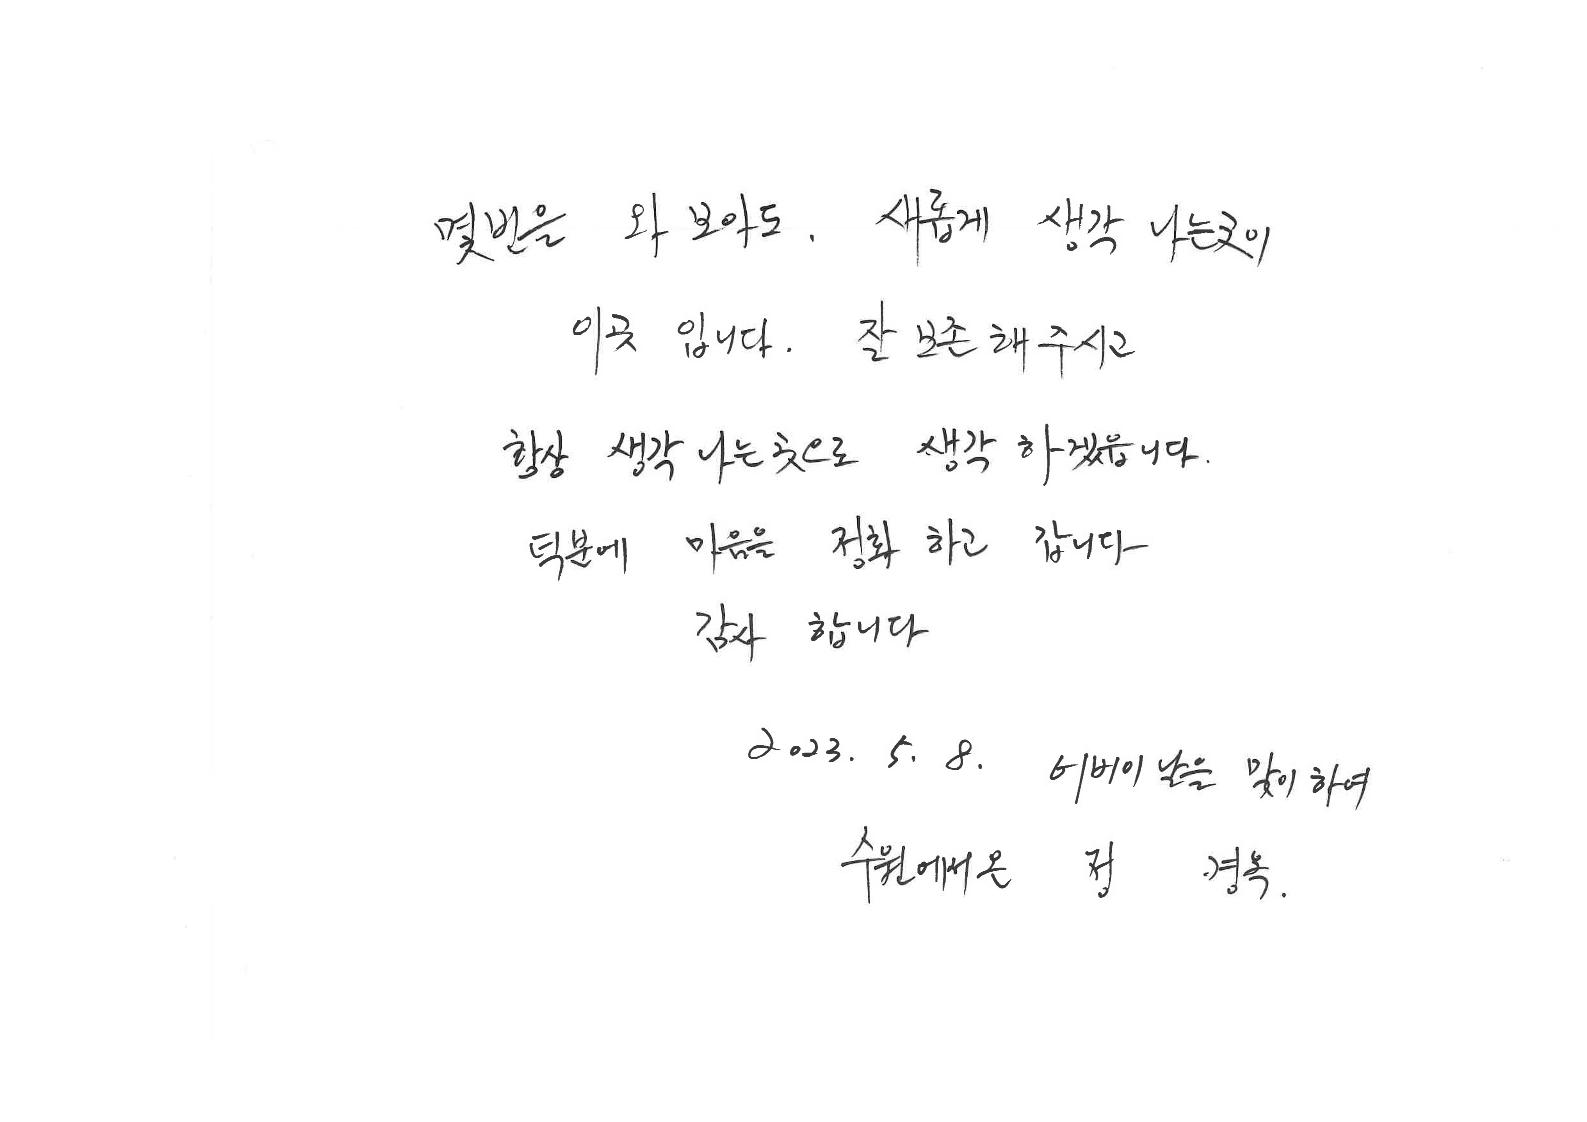 몇번을 와 보아도. 새롭게 생각 나는곳이
이곳 입니다. 잘 보존해 주시고
항상 생각 나는곳으로 생각 하겠읍니다.
덕분에 마음을 정화 하고 갑니다
감사 합니다
2023. 5. 8. 어버이 날을 맞이 하여
수원에서온 정 경옥.